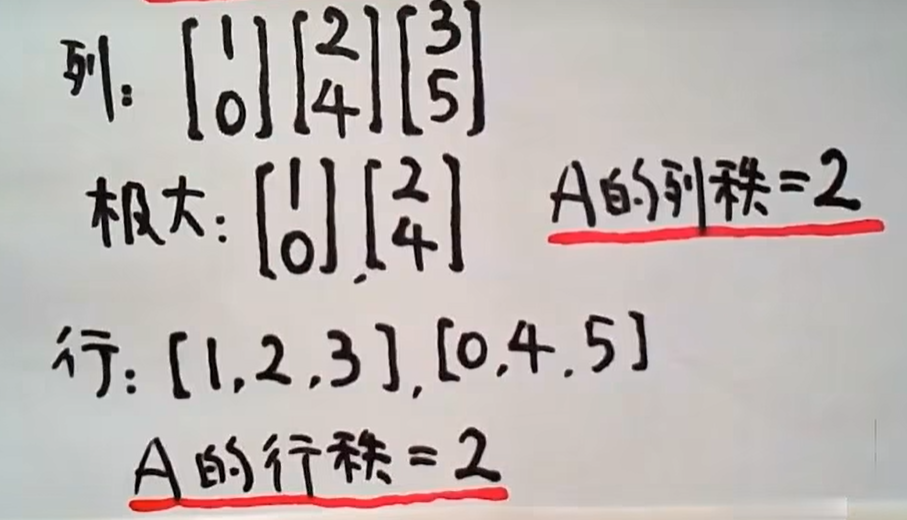 列: [1 0] [2 4] [3 5]
极大: [1 0], [2 4]
A的列秩=2
行: [1,2,3],[0,4,5]
A的行秩=2